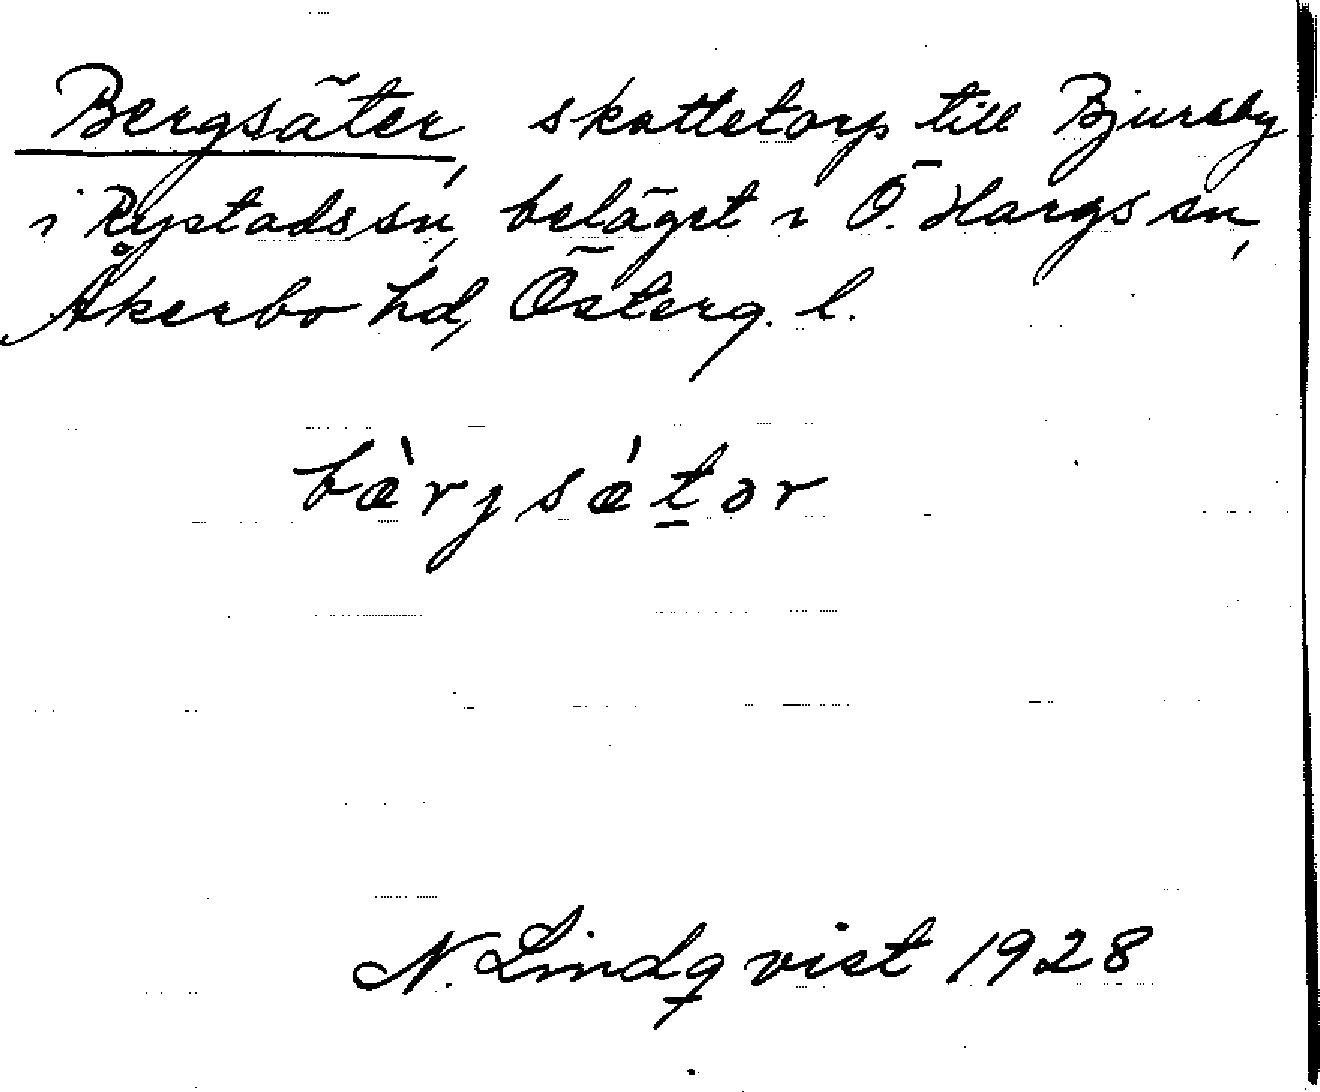 Bergsäter, skattetorp till Bjursby
i Rystads sn, beläget i Ö. Hargs sn,
Åkerbo hd, Österg. l.
bæ̀rjsǽt̠ər
N. Lindqvist 1928